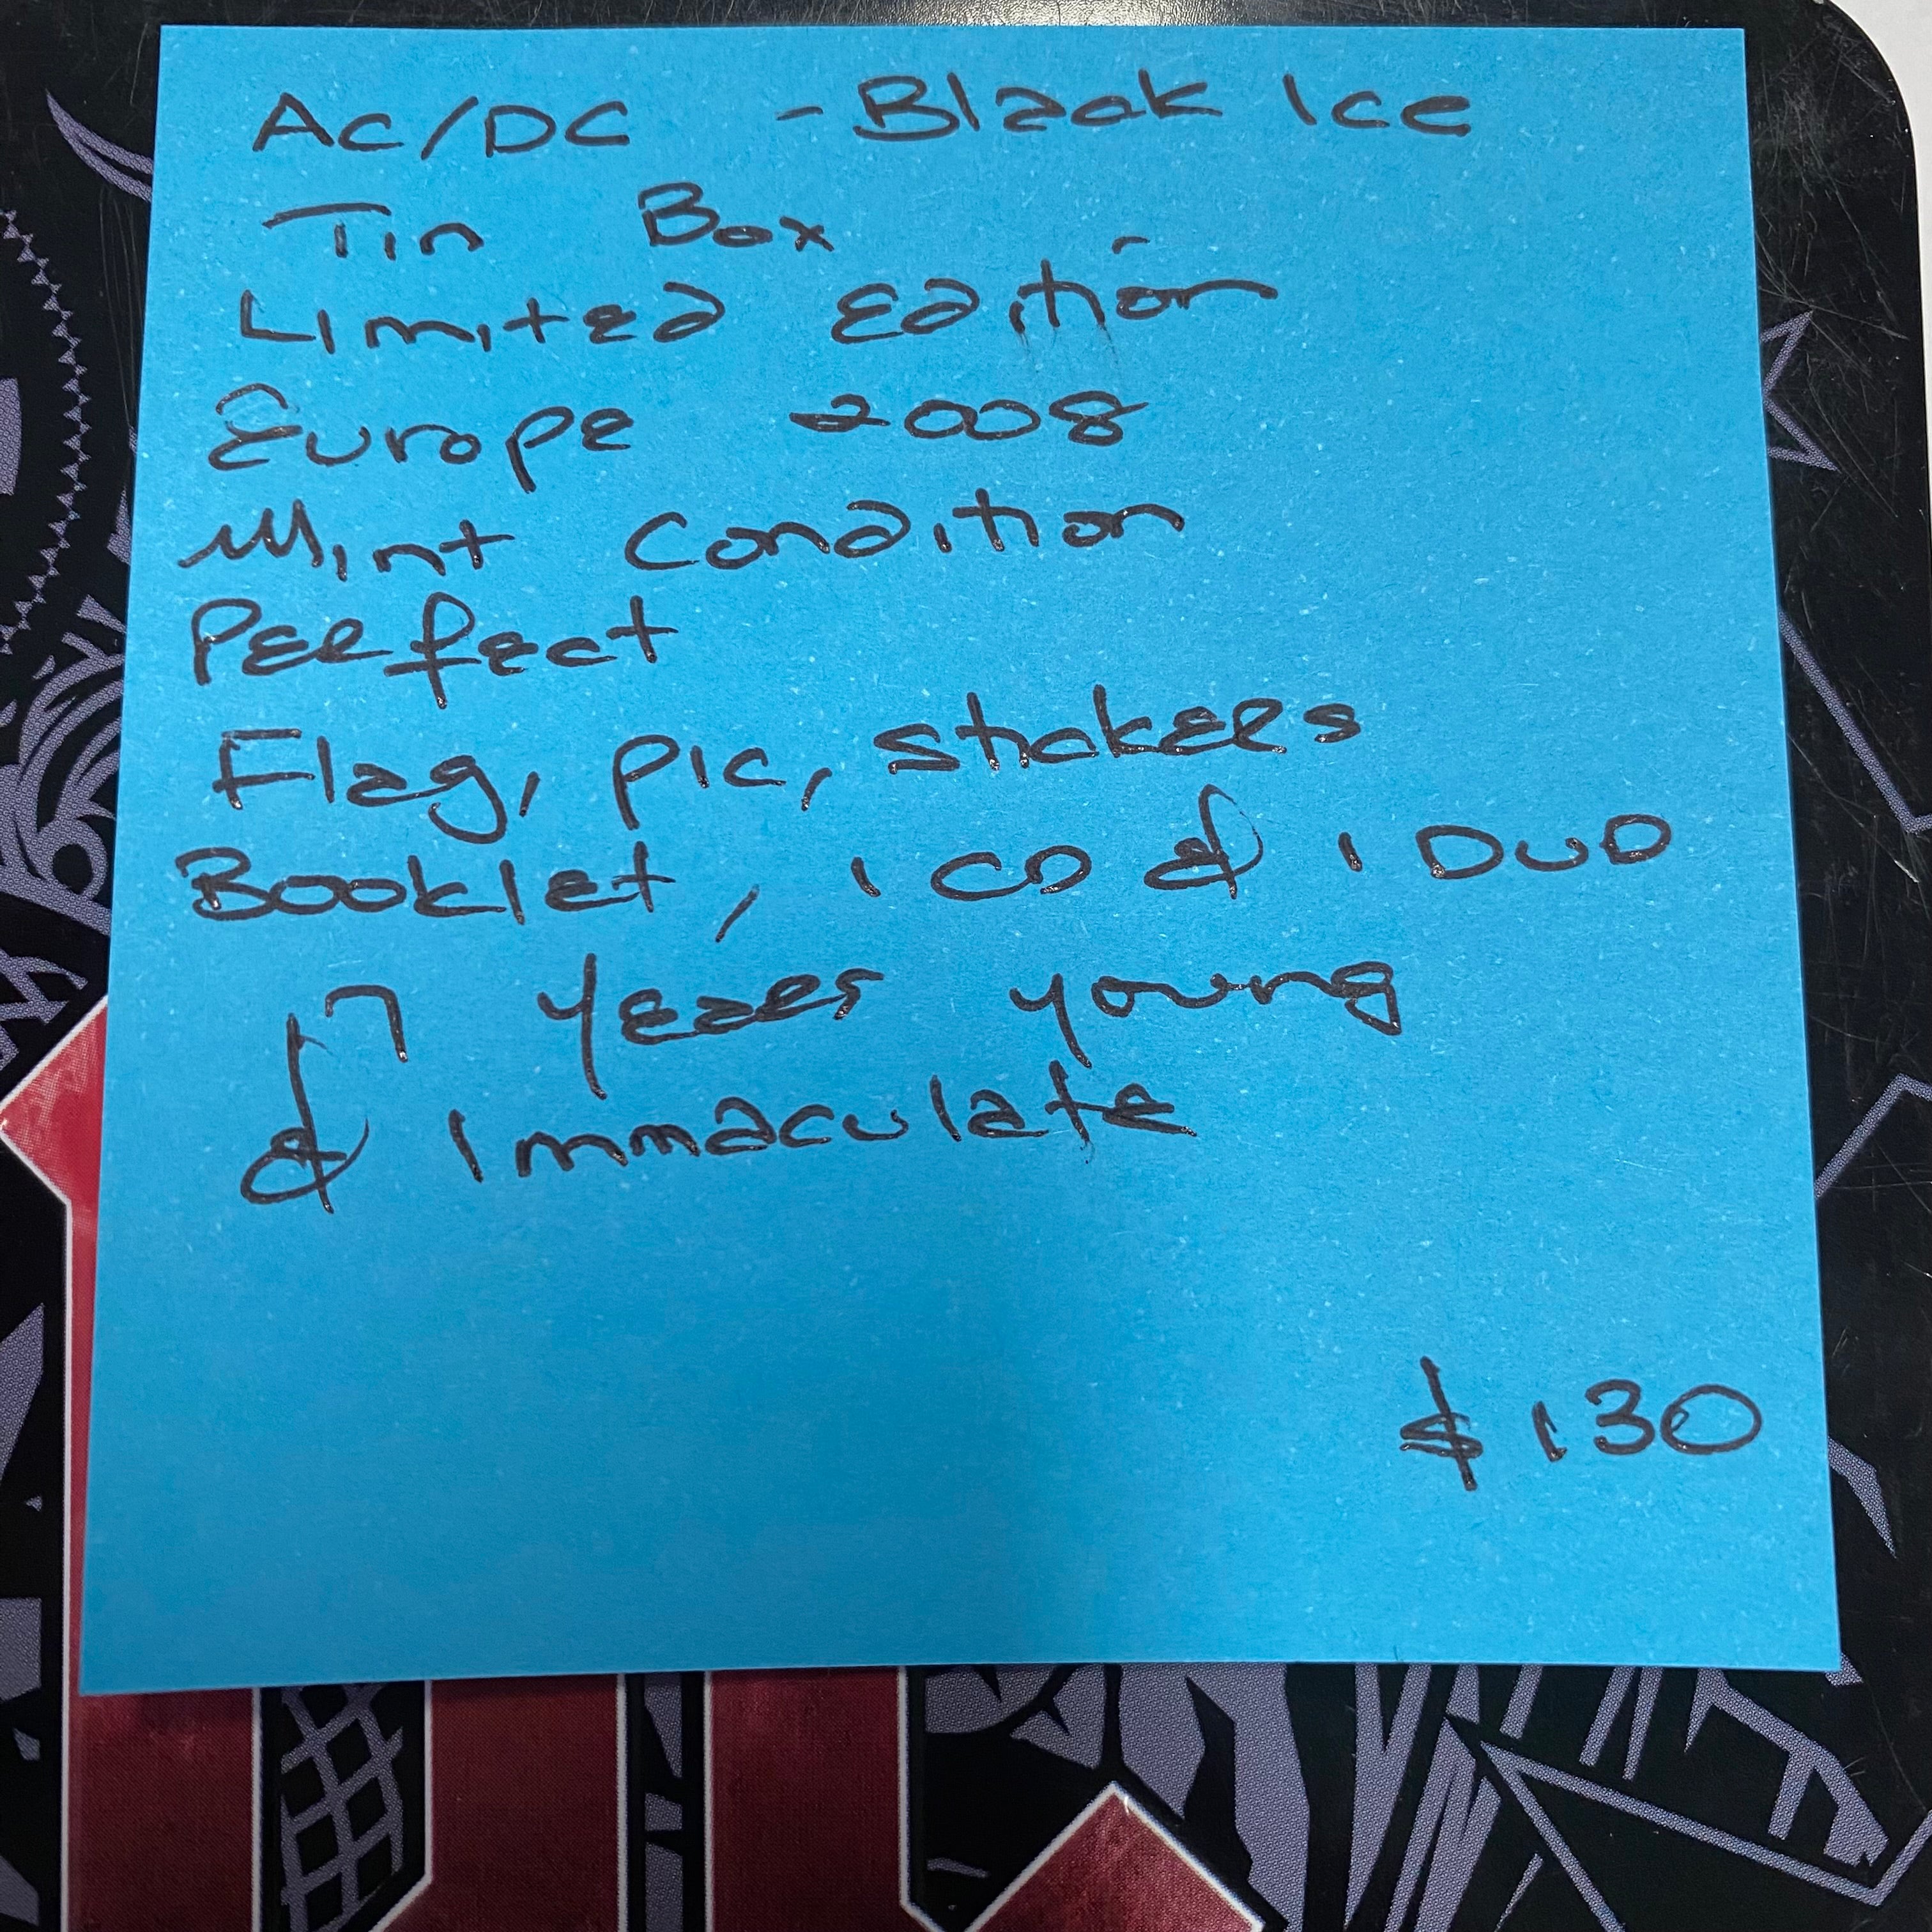 AC/DC - Black Ice
Tin Box
Limited Edition
Europe 2008
Mint Condition
Perfect
Flag, pic, stickers
Booklet, 1 CD & 1 DVD
17 years young
& immaculate
$130